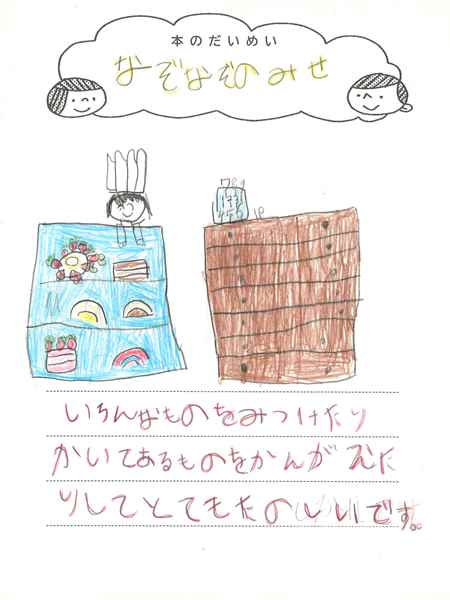 本のだいめい
なぞなぞのみせ
いろんなものをみつけたり
かいてあるものをかんがえた
りしてとてもたのしいです。